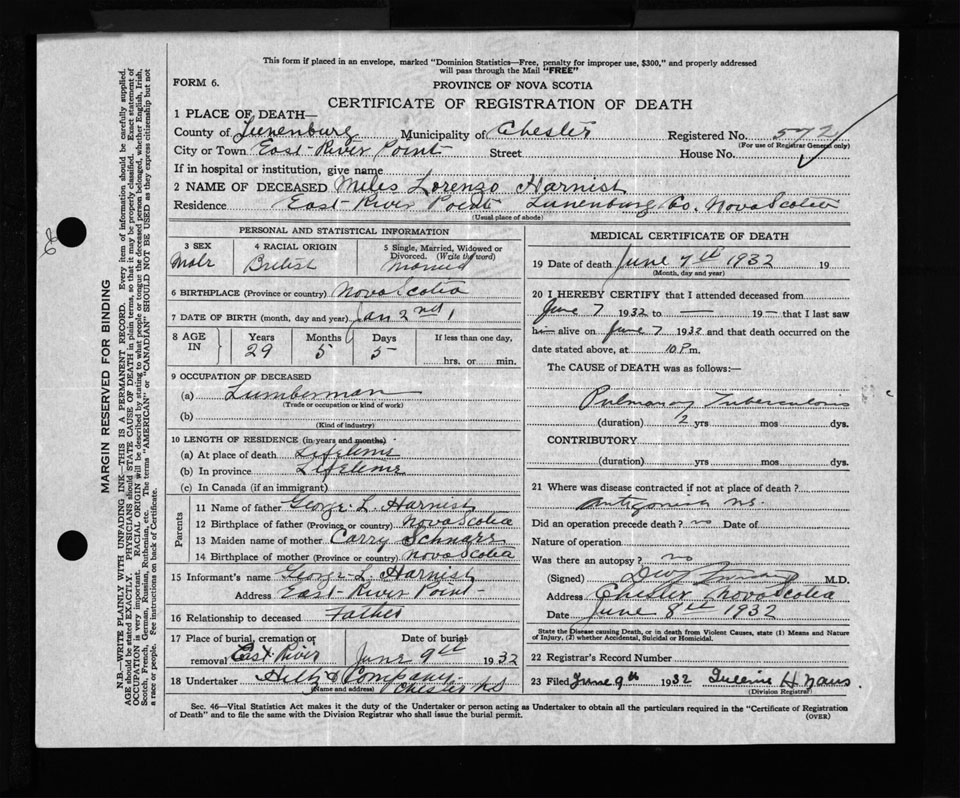 This form if placed in an envelope, marked "Dominion Statistics—Free, penalty for improper use, $300," and properly addressed
will pass through the Mail "FREE"
FORM 6.
PROVINCE OF NOVA SCOTIA
CERTIFICATE OF REGISTRATION OF DEATH
1 PLACE OF DEATH—
County of Lunenburg Municipality of Chester Registered No. 572
(For use of Registrar General only)
City or Town East River Point Street House No.
If in hospital or institution, give name
2 NAME OF DECEASED Miles Lorenzo Harnish
Residence East River Point Lunenburg Co. Nova Scotia
(Usual place of abode)
PERSONAL AND STATISTICAL INFORMATION
3 SEX Male
4 RACIAL ORIGIN British
5 Single, Married, Widowed or Divorced. (Write the word) Married
6 BIRTHPLACE (Province or country) Nova Scotia
7 DATE OF BIRTH (month, day and year) Jan 2nd,
8 AGE IN Years 29 Months 5 Days 5 If less than one day, hrs. or min.
9 OCCUPATION OF DECEASED
(a) Lumberman
(Trade or occupation or kind of work)
(b)
(Kind of industry)
10 LENGTH OF RESIDENCE (in years and months)
(a) At place of death Lifetime
(b) In province Lifetime
(c) In Canada (if an immigrant)
Parents
11 Name of father George L. Harnish
12 Birthplace of father (Province or country) Nova Scotia
13 Maiden name of mother Carry Schnare
14 Birthplace of mother (Province or country) Nova Scotia
15 Informant's name George L. Harnish
Address East River Point
16 Relationship to deceased Father
17 Place of burial, cremation or removal East River
Date of burial June 9th 1932
18 Undertaker Hiltz & Company
(Name and address) Chester NS
MEDICAL CERTIFICATE OF DEATH
19 Date of death June 7th 1932 19
(Month, day and year)
20 I HEREBY CERTIFY that I attended deceased from
June 7 1932 to — 19— that I last saw
him alive on June 7 1932 and that death occurred on the
date stated above, at 10 P m.
The CAUSE of DEATH was as follows:—
Pulmonary Tuberculosis
(duration) 2 yrs mos dys.
CONTRIBUTORY
(duration) yrs. mos. dys.
21 Where was disease contracted if not at place of death?
Antigonish N.S.
Did an operation precede death? no Date of
Nature of operation
Was there an autopsy? no
(Signed) M.D.
Address Chester Nova Scotia
Date June 8th 1932
State the Disease causing Death, or in death from Violent Causes, state (1) Means and Nature
of Injury, (2) whether Accidental, Suicidal or Homicidal.
22 Registrar's Record Number
23 Filed June 9th 1932
(Division Registrar)
Sec. 46—Vital Statistics Act makes it the duty of the Undertaker or person acting as Undertaker to obtain all the particulars required in the "Certificate of Registration
of Death" and to file the same with the Division Registrar who shall issue the burial permit.
(OVER)
MARGIN RESERVED FOR BINDING
N.B.—WRITE PLAINLY WITH UNFADING INK—THIS IS A PERMANENT RECORD. Every item of information should be carefully supplied.
AGE should be stated EXACTLY. PHYSICIANS should STATE CAUSE OF DEATH in plain terms, so that it may be properly classified. Exact statement of
OCCUPATION is very important. RACIAL ORIGIN will be described by stating to what people or tongue the deceased person belonged, whether English, Irish,
Scotch, French, German, Russian, Ruthenian, etc. The terms "AMERICAN" or "CANADIAN" SHOULD NOT BE USED as they express citizenship but not
a race or people. See instructions on back of Certificate.